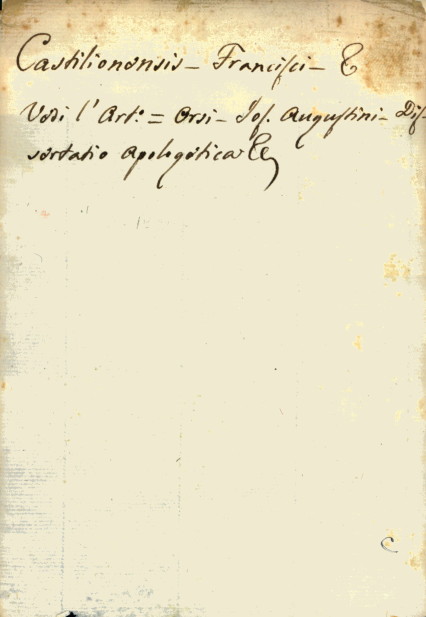 Castilionensis – Francisci – &
Vedi l' Art.º = Orsi – Jos. Augustini – Dis-
sertatio Apologetica &c
C